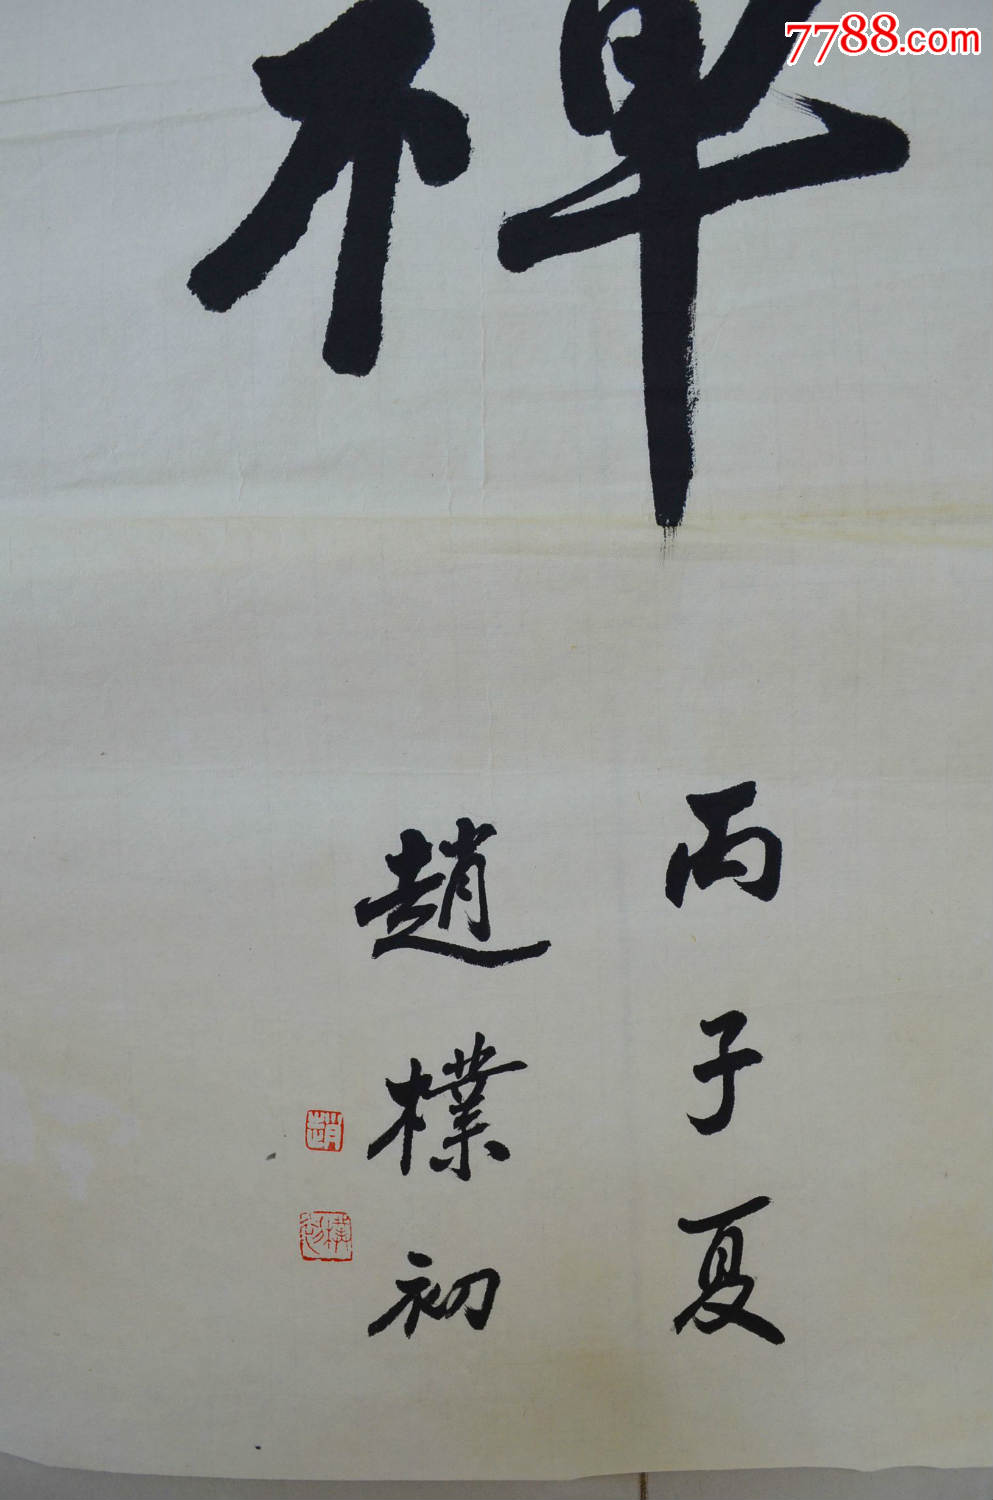 7788.com
禅
丙子夏
趙樸初
趙
樸初